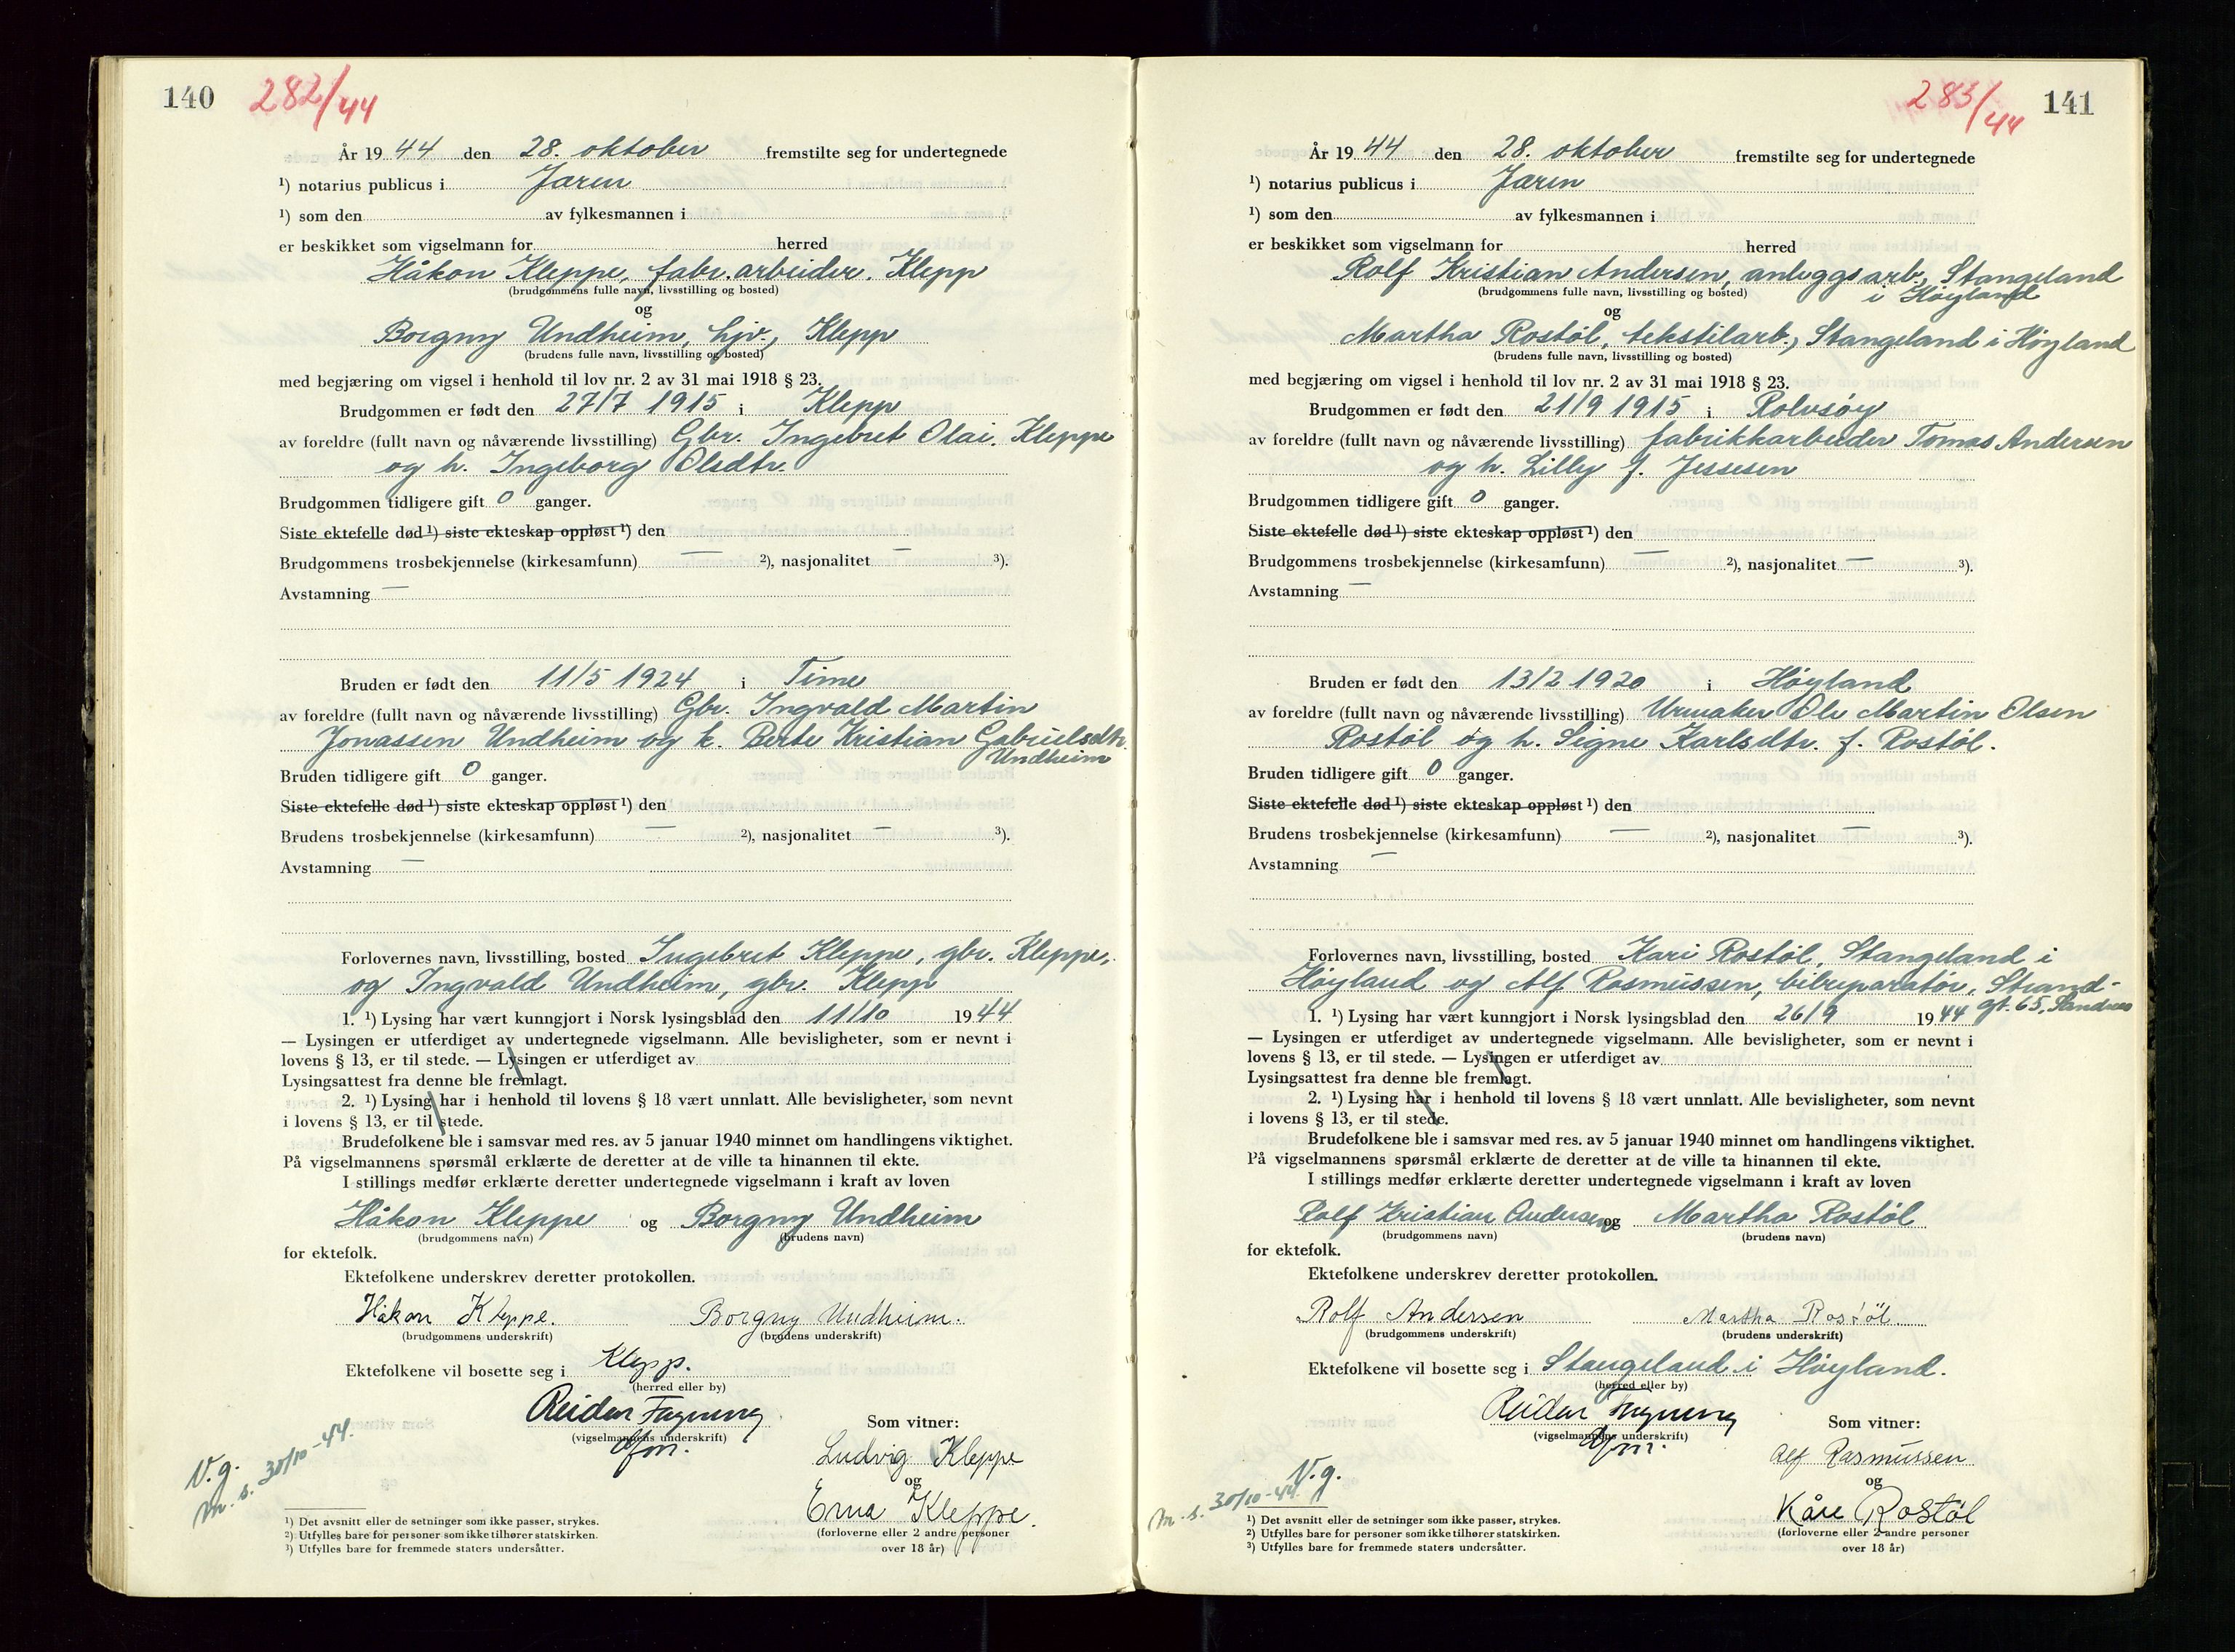 140 282/44
År 19 44 den 28. oktober fremstilte seg for undertegnede
¹) notarius publicus i Jæren
¹) som den av fylkesmannen i
er beskikket som vigselmann for herred
Håkon Kleppe, fabr.arbeider. Klepp
(brudgommens fulle navn, livsstilling og bosted)
og
Borgny Undheim, hjv., Klepp
(brudens fulle navn, livsstilling og bosted)
med begjæring om vigsel i henhold til lov nr. 2 av 31 mai 1918 § 23.
Brudgommen er født den 27/7 1915 i Klepp
av foreldre (fullt navn og nåværende livsstilling) Gbr. Ingebret Olai. Kleppe
og h. Ingeborg Olsdtr.
Brudgommen tidligere gift 0 ganger.
Siste ektefelle død ¹) siste ekteskap oppløst ¹) den
Brudgommens trosbekjennelse (kirkesamfunn) — ²), nasjonalitet — ³).
Avstamning —
Bruden er født den 11/5 1924 i Time
av foreldre (fullt navn og nåværende livsstilling) Gbr. Ingvald Martin
Jonassen Undheim og h. Berte Kristian Gabrielsdtr.
Undheim
Bruden tidligere gift 0 ganger.
Siste ektefelle død ¹) siste ekteskap oppløst ¹) den
Brudens trosbekjennelse (kirkesamfunn) — ²), nasjonalitet — ³).
Avstamning —
Forlovernes navn, livsstilling, bosted Ingebret Kleppe, gbr. Kleppe,
og Ingvald Undheim, gbr. Klepp
1. ¹) Lysing har vært kunngjort i Norsk lysingsblad den 11/10 19 44
— Lysingen er utferdiget av undertegnede vigselmann. Alle bevisligheter, som er nevnt i
lovens § 13, er til stede. — Lysingen er utferdiget av
Lysingsattest fra denne ble fremlagt.
2. ¹) Lysing har i henhold til lovens § 18 vært unnlatt. Alle bevisligheter, som nevnt
i lovens § 13, er til stede.
Brudefolkene ble i samsvar med res. av 5 januar 1940 minnet om handlingens viktighet.
På vigselmannens spørsmål erklærte de deretter at de ville ta hinannen til ekte.
I stillings medfør erklærte deretter undertegnede vigselmann i kraft av loven
Håkon Kleppe og Borgny Undheim
(brudgommens navn) (brudens navn)
for ektefolk.
Ektefolkene underskrev deretter protokollen.
Håkon Kleppe. Borgny Undheim.
(brudgommens underskrift) (brudens underskrift)
Ektefolkene vil bosette seg i Klepp.
(herred eller by)
Reidar Fagnung
(vigselmannens underskrift)
Som vitner:
Ludvig Kleppe
og
Erna Kleppe.
(forloverne eller 2 andre personer
over 18 år)
V.g.
m.s. 30/10-44.
¹) Det avsnitt eller de setninger som ikke passer, strykes.
²) Utfylles bare for personer som ikke tilhører statskirken.
³) Utfylles bare for fremmede staters undersåtter.
283/44 141
År 19 44 den 28. oktober fremstilte seg for undertegnede
¹) notarius publicus i Jæren
¹) som den av fylkesmannen i
er beskikket som vigselmann for herred
Rolf Kristian Andersen, anleggsarb., Stangeland
i Høyland
(brudgommens fulle navn, livsstilling og bosted)
og
Martha Rostøl, tekstilarb., Stangeland i Høyland
(brudens fulle navn, livsstilling og bosted)
med begjæring om vigsel i henhold til lov nr. 2 av 31 mai 1918 § 23.
Brudgommen er født den 21/9 1915 i Rolvsøy
av foreldre (fullt navn og nåværende livsstilling) fabrikkarbeider Tomas Andersen
og h. Lilly f. Jessesen
Brudgommen tidligere gift 0 ganger.
Siste ektefelle død ¹) siste ekteskap oppløst ¹) den
Brudgommens trosbekjennelse (kirkesamfunn) — ²), nasjonalitet — ³).
Avstamning —
Bruden er født den 13/2 1920 i Høyland
av foreldre (fullt navn og nåværende livsstilling) Urmaker Ole Martin Olsen
Rostøl og h. Signe Karlsdtr. f. Rostøl.
Bruden tidligere gift 0 ganger.
Siste ektefelle død ¹) siste ekteskap oppløst ¹) den
Brudens trosbekjennelse (kirkesamfunn) — ²), nasjonalitet — ³).
Avstamning —
Forlovernes navn, livsstilling, bosted Kari Rostøl, Stangeland i
Høyland og Alf Rasmussen, bilreparatør, Strand-
gt. 65, Sandnes
1. ¹) Lysing har vært kunngjort i Norsk lysingsblad den 26/9 19 44
— Lysingen er utferdiget av undertegnede vigselmann. Alle bevisligheter, som er nevnt i
lovens § 13, er til stede. — Lysingen er utferdiget av
Lysingsattest fra denne ble fremlagt.
2. ¹) Lysing har i henhold til lovens § 18 vært unnlatt. Alle bevisligheter, som nevnt
i lovens § 13, er til stede.
Brudefolkene ble i samsvar med res. av 5 januar 1940 minnet om handlingens viktighet.
På vigselmannens spørsmål erklærte de deretter at de ville ta hinannen til ekte.
I stillings medfør erklærte deretter undertegnede vigselmann i kraft av loven
Rolf Kristian Andersen og Martha Rostøl
(brudgommens navn) (brudens navn)
for ektefolk.
Ektefolkene underskrev deretter protokollen.
Rolf Andersen Martha Rostöl
(brudgommens underskrift) (brudens underskrift)
Ektefolkene vil bosette seg i Stangeland i Høyland.
(herred eller by)
Reidar Fagnung
(vigselmannens underskrift)
Som vitner:
Alf Rasmussen
og
Kåre Rostøl
(forloverne eller 2 andre personer
over 18 år)
V.g.
m.s. 30/10-44.
¹) Det avsnitt eller de setninger som ikke passer, strykes.
²) Utfylles bare for personer som ikke tilhører statskirken.
³) Utfylles bare for fremmede staters undersåtter.